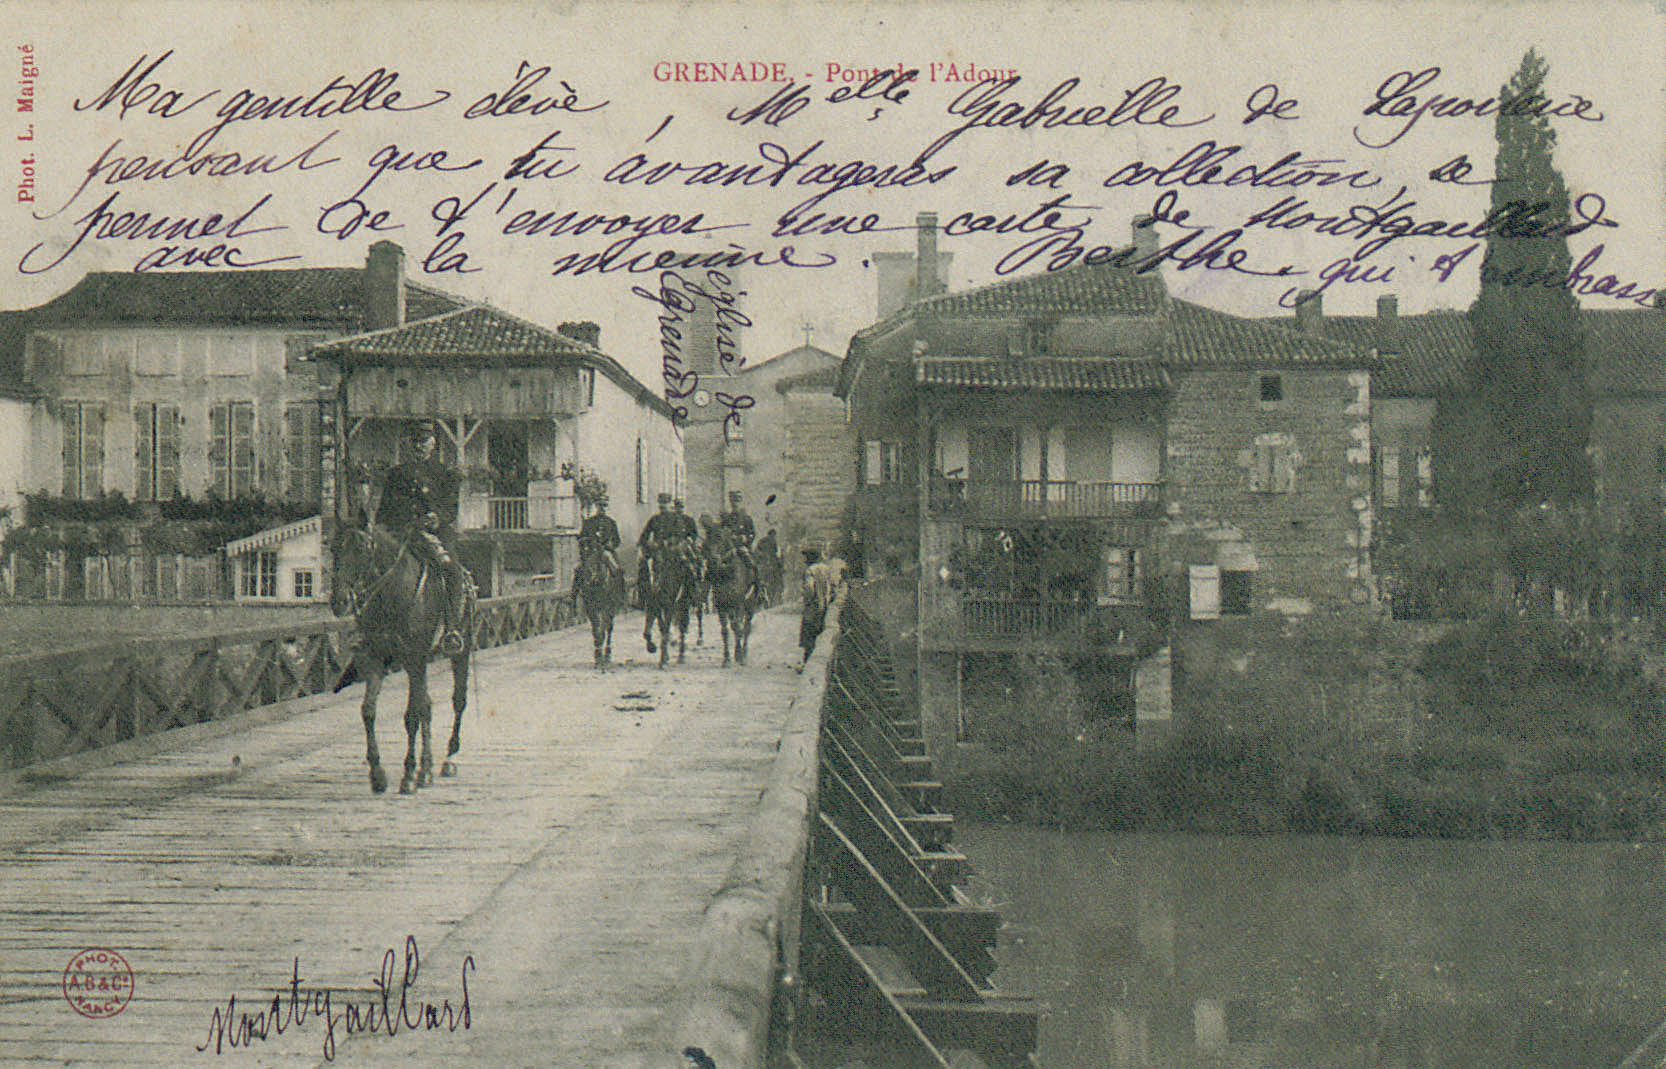 GRENADE. - Pont de l'Adour
Phot. L. Maigné
Ma gentille élève, Melle Gabrielle de
pensant que tu avantageras sa collection, se
permet de t'envoyer une carte de Montgaillard
avec la mienne. Berthe, qui t'embrasse
église de
Grenade
PHOT.
A.B & Cie
NANCY
Montgaillard